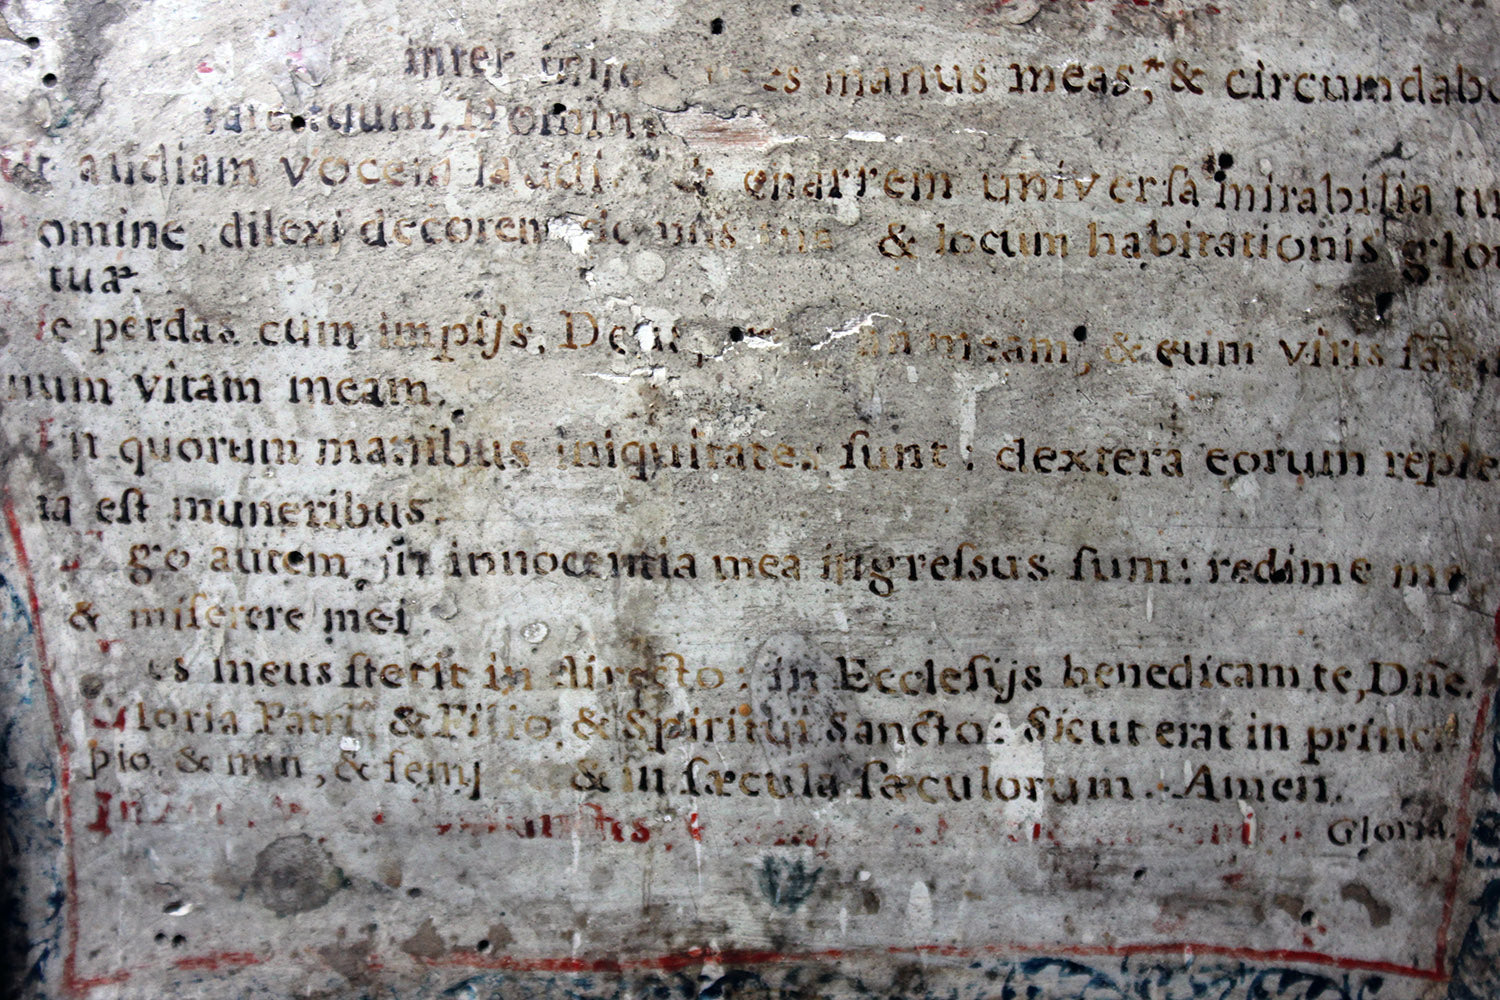 inter manus meas, & circumdabo
tare tuum, Domine
Ut audiam vocem laudis & enarrem universa mirabilia tu
omine, dilexi decorem domus tuæ & locum habitationis glor
tuæ.
e perdas cum impijs, Deus, an meam, & cum viris sangui
num vitam meam.
In quorum manibus iniquitates sunt: dextera eorum reple
ta est muneribus.
go autem in innocentia mea ingressus sum: redime me
& miserere mei
es meus stetit in directo: in Ecclesijs benedicam te, Dñe.
Gloria Patri & Filio, & Spiritui Sancto: Sicut erat in princi
pio, & nun, & semp & in sæcula sæculorum. Amen.
Gloria.